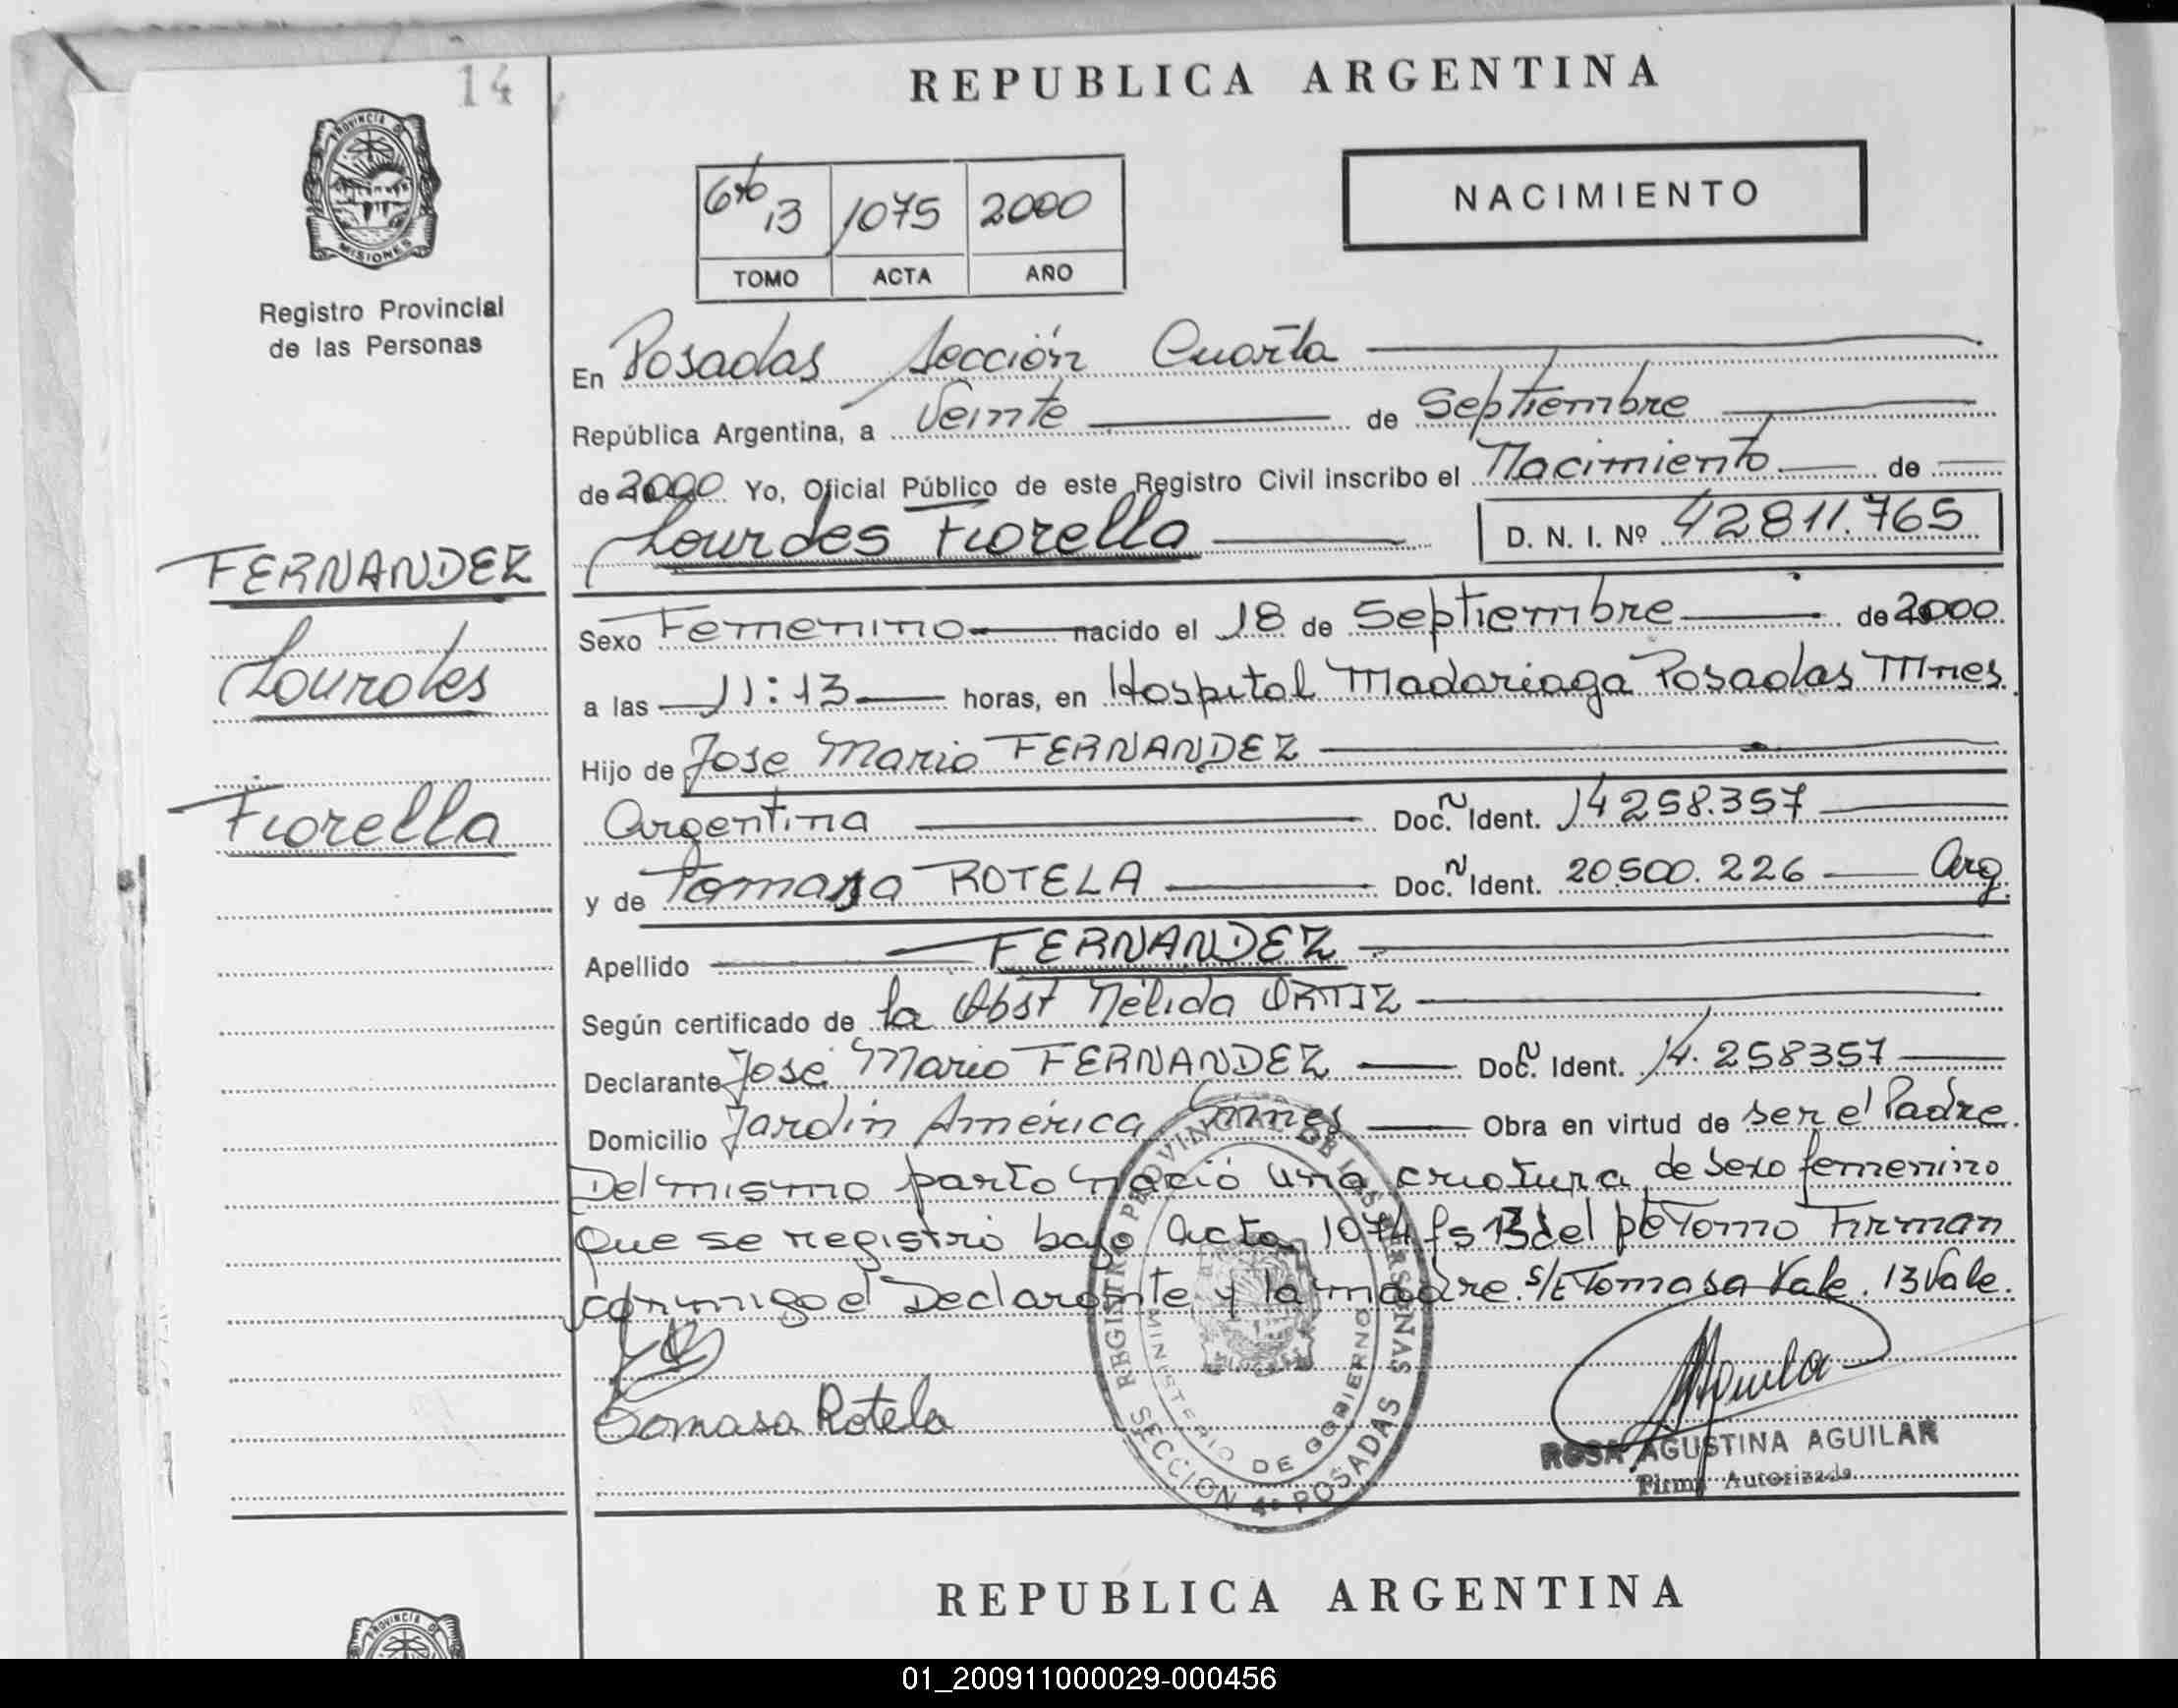 14
REPUBLICA ARGENTINA
PROVINCIA DE
MISIONES
Registro Provincial
de las Personas
6to 13 1075 2000
TOMO ACTA AÑO
NACIMIENTO
En Posadas Sección Cuarta
República Argentina, a Veinte de Septiembre
de 2000 Yo, Oficial Público de este Registro Civil inscribo el Nacimiento de
Lourdes Fiorella D. N. I. Nº 42811.765
FERNANDEZ
Lourdes
Fiorella
Sexo Femenino nacido el 18 de Septiembre de 2000
a las 11:13 horas, en Hospital Madariaga Posadas Mnes
Hijo de Jose Mario FERNANDEZ
Argentina Doc. N Ident. 14258.357
y de Tomasa ROTELA Doc. N Ident. 20500.226 Arg.
Apellido FERNANDEZ
Según certificado de la Obst Nélida ORTIZ
Declarante José Mario FERNANDEZ Doc. N Ident. 14.258357
Domicilio Jardin América Mnes Obra en virtud de ser el Padre.
Del mismo parto nació una criatura de sexo femenino
que se registró bajo acta 1074 fs 13 del 6to Tomo Firman
conmigo el Declarante y la madre. s/E Tomasa Vale. 13 Vale.
Tomasa Rotela
REGISTRO PROVINCIAL DE LAS PERSONAS
MINISTERIO DE GOBIERNO
SECCION 4ª POSADAS
Aguila
ROSA AGUSTINA AGUILAR
Firma Autorizada
REPUBLICA ARGENTINA
PROVINCIA
01_200911000029-000456